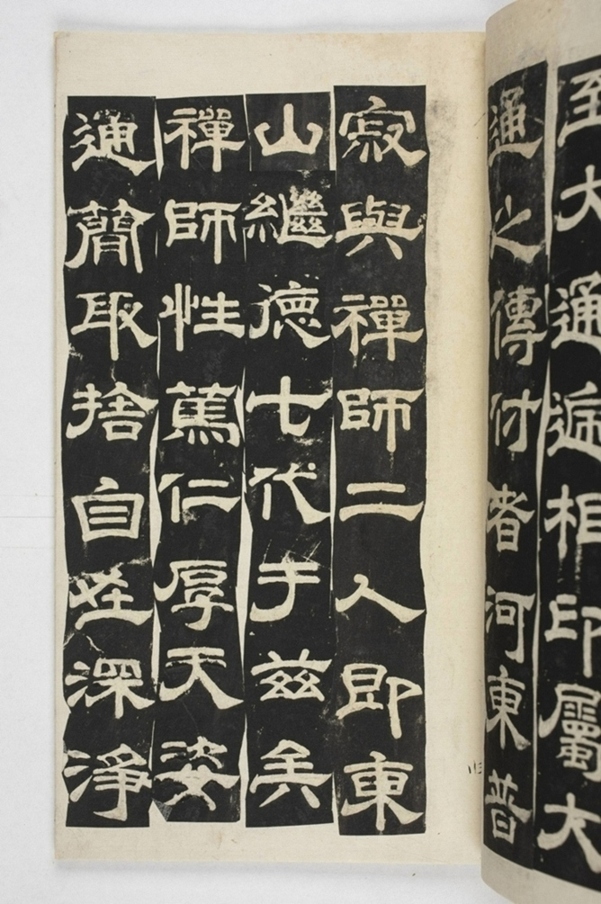 至大通遞相印屬大
通之傳付者河東普
寂與禪師二人即東
山繼德七代于兹矣
禪師性篤仁厚天姿
通簡取捨自在深淨